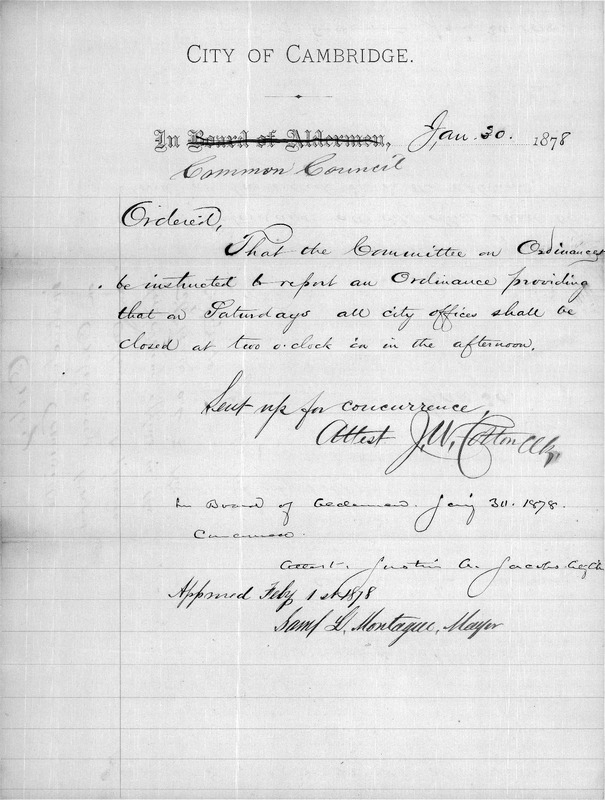 CITY OF CAMBRIDGE.
In Board of Aldermen, Jan. 30. 1878
Common Council
Ordered,
That the Committee on Ordinances
be instructed to report an Ordinance providing
that on Saturdays all city offices shall be
closed at two o'clock in in the afternoon.
Sent up for concurrence,
Attest J. W. Cotton Clk,
In Board of Aldermen. Jany 30. 1878.
Concurred.
Attest. Justin A. Jacobs City Clk
Approved Feby 1st 1878
Saml L. Montague, Mayor